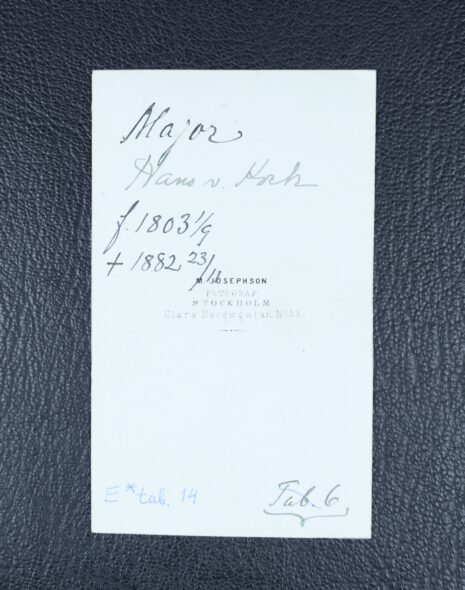 Major
Hans v. Koch
f. 1803 1/9
+ 1882 23/11
M. JOSEPHSON
FOTOGRAF
STOCKHOLM
Clara Bergsgatan N:o
E* tab. 14
Tab. 6.